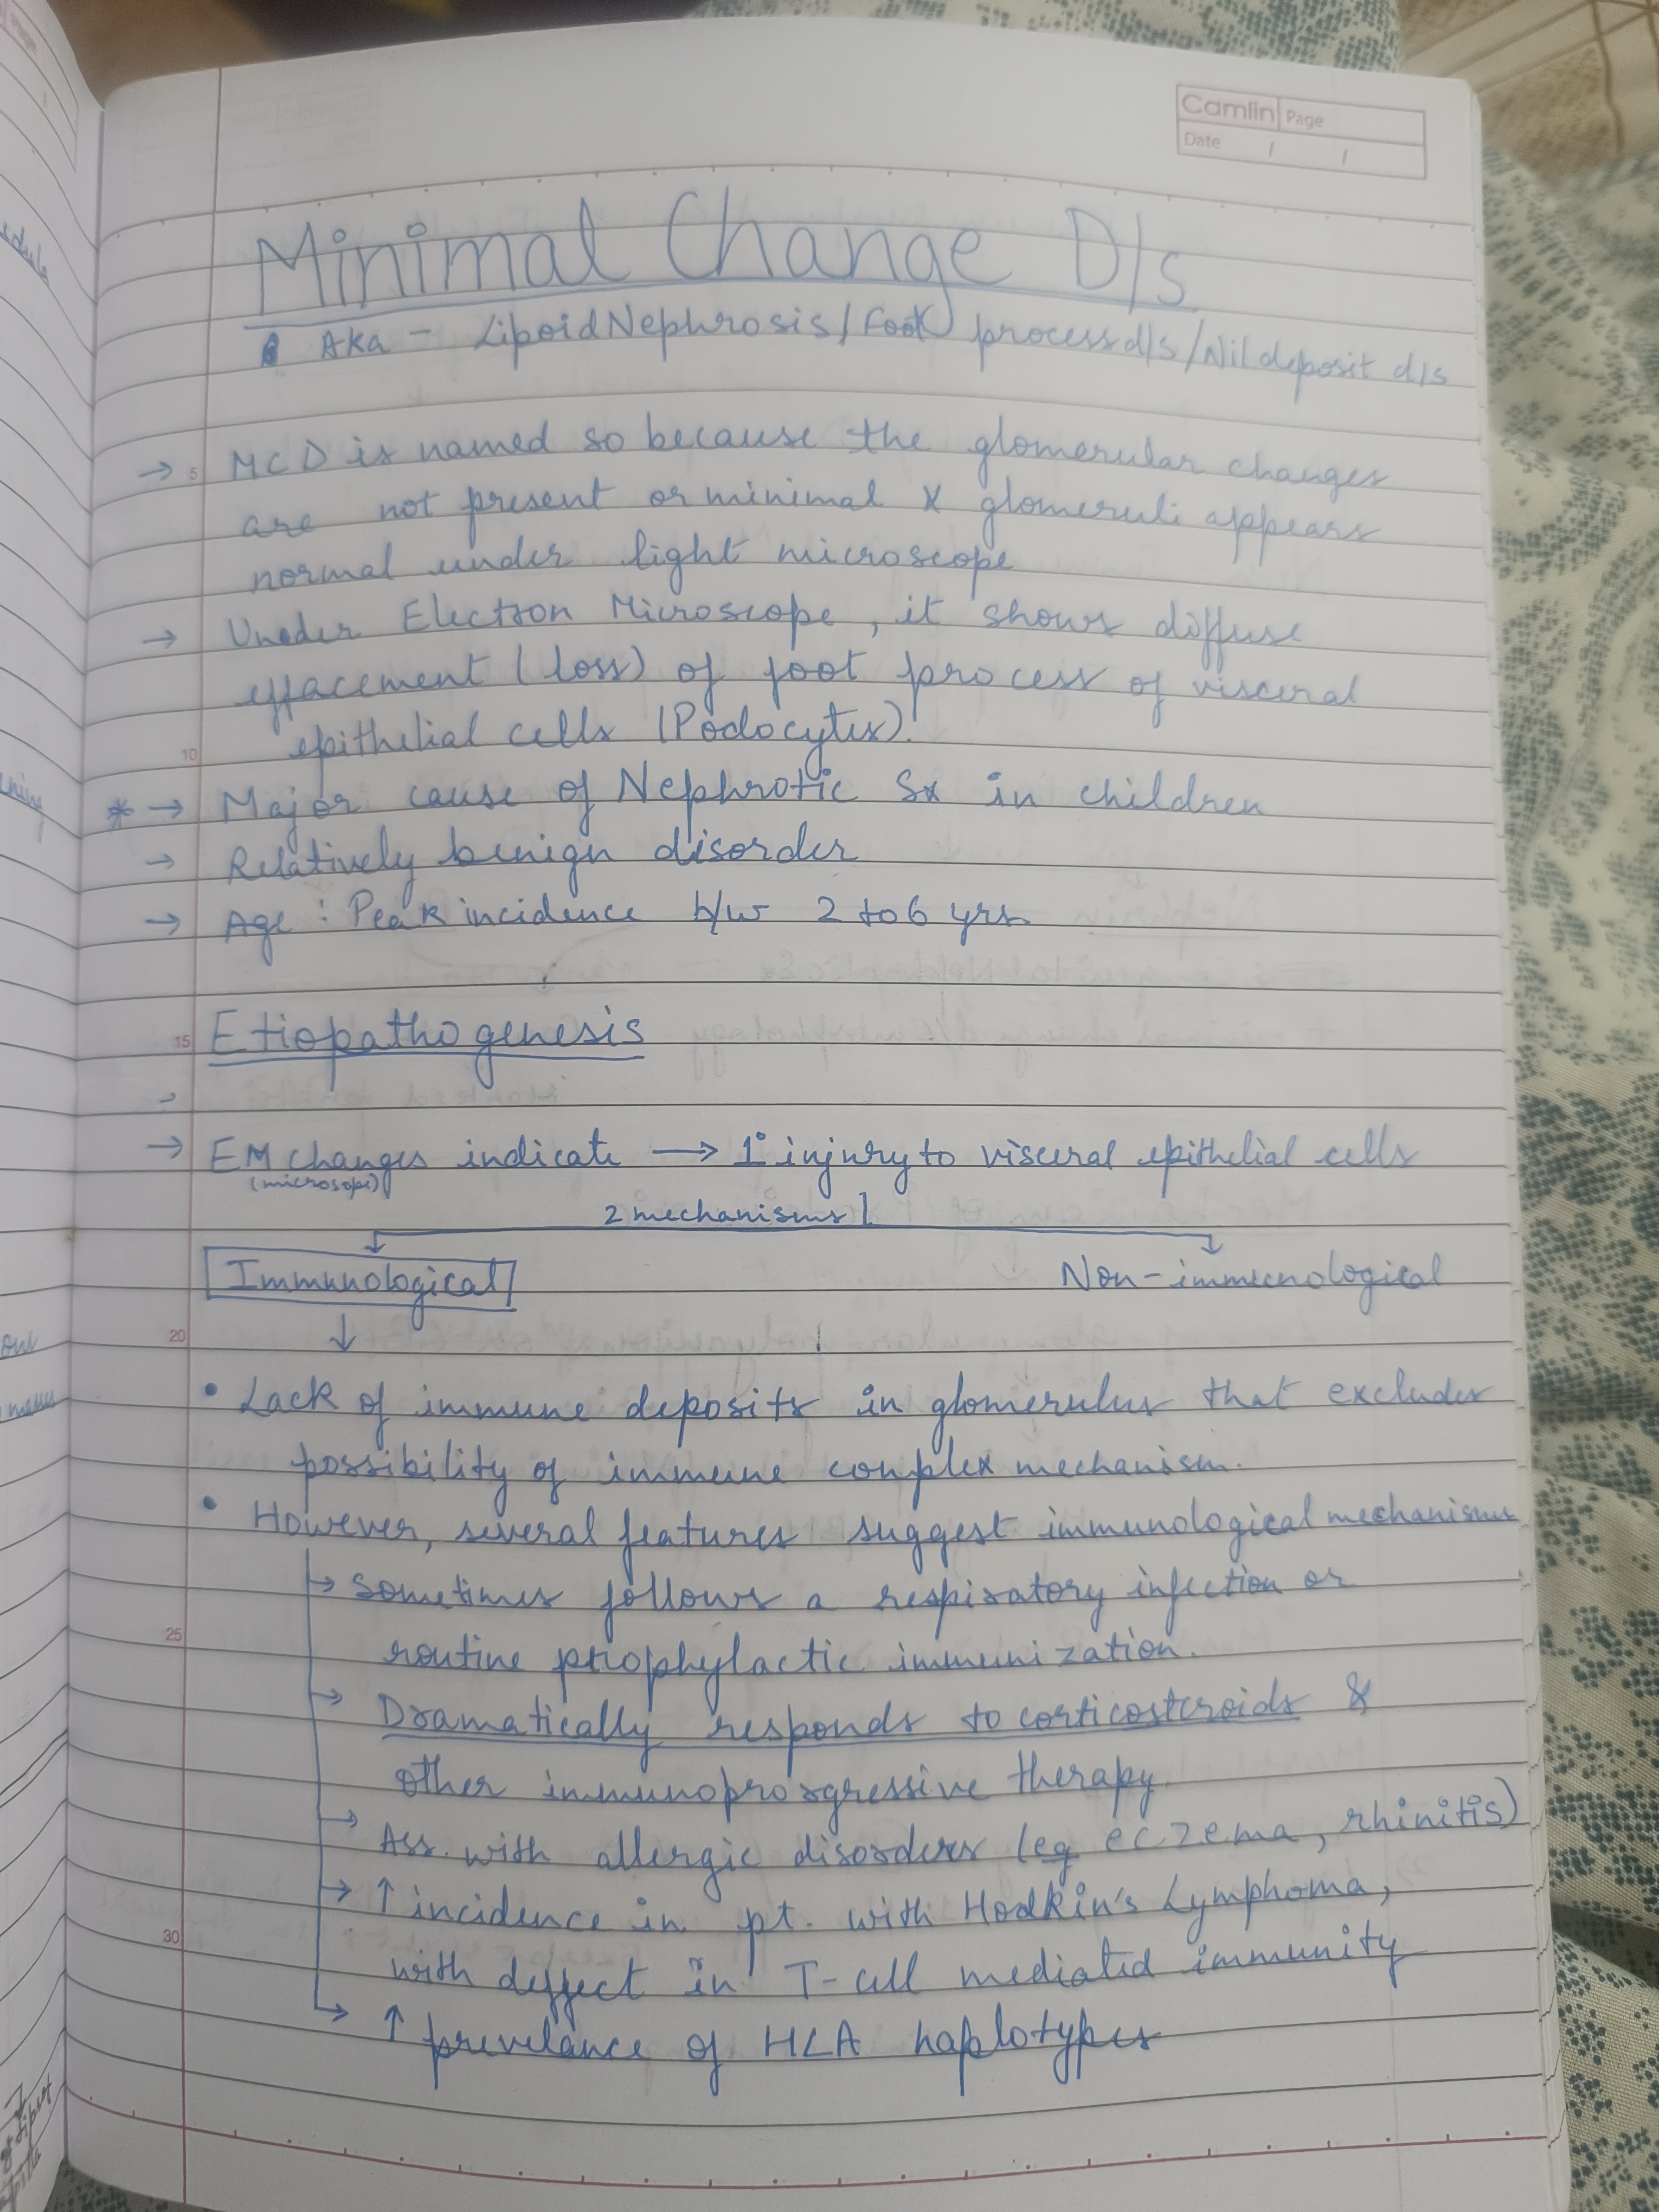 Camlin Page
Date / /
Minimal Change D/s
Aka - Lipoid Nephrosis/Foot process d/s/Nil deposit d/s
→ MCD is named so because the glomerular changes
are not present or minimal & glomeruli appears
normal under light microscope
→ Under Electron Microscope, it shows diffuse
effacement (loss) of foot process of visceral
epithelial cells (Podocytes).
* → Major cause of Nephrotic Sx in children
→ Relatively benign disorder
→ Age : Peak incidence b/w 2 to 6 yrs.
Etiopathogenesis
→ EM changes indicate → 1° injury to visceral epithelial cells
(microsope)
2 mechanisms
Immunological Non-immunological
↓
• Lack of immune deposits in glomerulus that excludes
possibility of immune complex mechanism.
• However, several features suggest immunological mechanisms
→ sometimes follows a respiratory infection or
routine prophylactic immunization.
→ Dramatically responds to corticosteroids &
other immunoprosgressive therapy.
→ Ass. with allergic disorders (eg eczema, rhinitis)
→ ↑ incidence in pt. with Hodkin's Lymphoma,
with deffect in T-cell mediated immunity
→ ↑ prevelance of HLA haplotypes
5
10
15
20
25
30